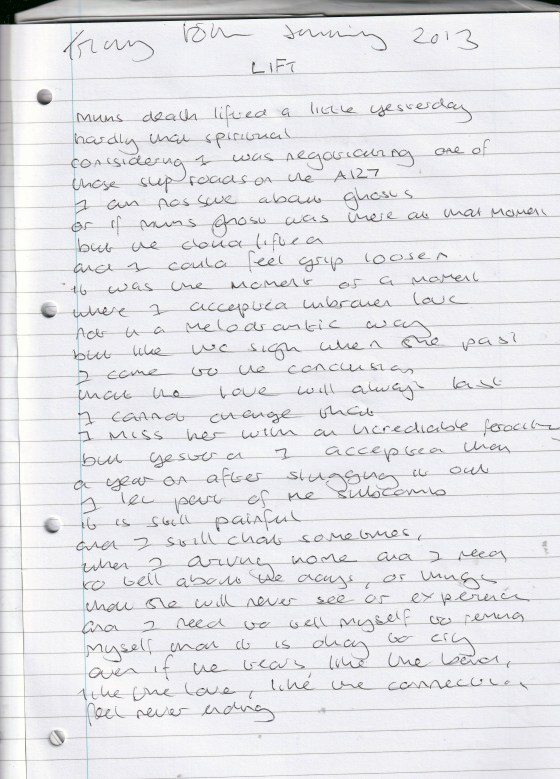 Friday 18th January 2013
LIFT
mums death lifted a little yesterday
hardly that spiritual
considering I was negotiating one of
those slip roads on the A127
I am not sure about ghosts
or if mums ghost was there at that moment
but the cloud lifted
and I could feel grip loosen
it was the moment of a moment
where I accepted unbroken love
not in a melodramtic way
but like the sigh when she past
I came to the conclusion
that the love will always last
I cannot change that
I miss her with an incrediable ferocity
but yesterd I accepted that
a year on after slugging it out
I let part of me subcomb
it is still painful
and I still chat sometimes,
when I driving home and I need
to tell about the days, or things
that she will never see or experience
and I need to tell myself to remind
myself that it is okay to cry
even if the tears like the bond,
like the love, like the connection
feel never ending